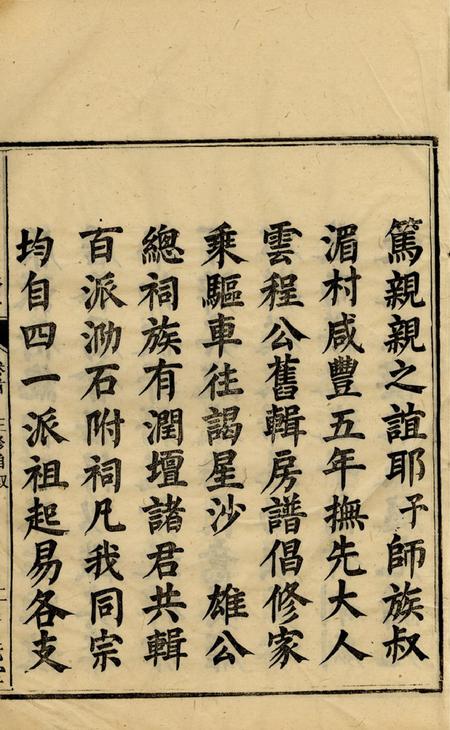 篤親親之誼耶予師族叔
湄村咸豐五年撫先大人
雲程公舊輯房譜倡修家
乘驅車往謁星沙　雄公
總祠族有潤壇諸君共輯
百派泐石附祠凡我同宗
均自四一派祖起易各支